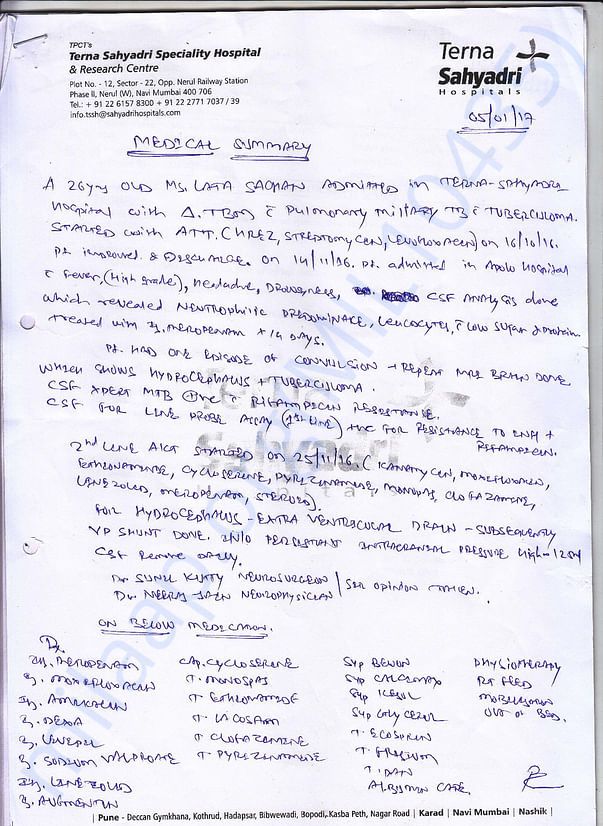 TPCT's
Terna Sahyadri Speciality Hospital
& Research Centre
Plot No. - 12, Sector - 22, Opp. Nerul Railway Station
Phase II, Nerul (W), Navi Mumbai 400 706
Tel.: + 91 22 6157 8300 + 91 22 2771 7037 / 39
info.tssh@sahyadrihospitals.com
Terna
Sahyadri
Hospitals
05/01/17
MEDICAL SUMMARY
A 26yrs OLD MS. LATA SACHAN ADMITTED in TERNA-SAHYADRI
Hospital with Δ. TBM c̄ Pulmonary military TB c̄ TUBERCULOMA.
STARTED with ATT. (HREZ, STREPTOMYCIN, LEVOFLOXACIN) on 16/10/16.
Pt improved & DISCHARGE. on 14/11/16. Pt. admitted in Apolo Hospital
c̄ Fever, (High grade), Headache, Drowsyness, CSF ANALYSIS done
which revealed NEUTROPHILIC PREDOMINACE, LEUCOCYTES, c̄ low sugar & protein.
treated with Inj. MEROPENAM + 14 DAYS.
Pt. HAD ONE EPISODE OF CONVULSION → REPEAT MRI BRAIN DONE
WHICH SHOWS HYDROCEPHALUS + TUBERCULOMA.
CSF XPERT MTB +ve c̄ RIFAMPICIN RESISTANCE.
CSF FOR LINE PROBE ASSAY (1st Line) +ve FOR RESISTANCE TO INH +
RIFAMPICIN.
2nd LINE AKT STARTED on 25/11/16. (KANAMYCIN, MOXIFLOXACIN,
ETHIONAMIDE, CYCLOSERINE, PYREZINAMIDE, MONOPAS, CLOFAZAMINE,
LINEZOLID, MEROPENAM, STEROID).
FOR HYDROCEPHALUS - EXTRA VENTRICULAR DRAIN - SUBSEQUENTLY
VP SHUNT DONE. I/V/O PERSISTANT INTRACRANIAL PRESSURE HIGH -
CSF Remove daily.
Dr. SUNIL KUTTY NEUROSURGEON / SER OPINION TAKEN.
Dr. NEERAJ JAIN NEUROPHYSICIAN
ON BELOW MEDICATION.
Rx
Inj. MEROPENAM CAP. CYCLOSERINE SYP BEVON PHYSIOTHERAPY
Inj. MOXIFLOXACIN T. MONOSPAS SYP RT FEED
Inj. AMIKACIN T. ETHIONAMIDE SYP MOBILISATION
Inj. DEXA T. LICOSAM SYP OUT OF BED.
Inj. T. CLOFAZAMINE T. ECOSPRIN
Inj. SODIUM VALPROATE T. PYREZINAMIDE T.
Inj. LINEZOLID T.
Inj. AUGMENTIN
| Pune - Deccan Gymkhana, Kothrud, Hadapsar, Bibwewadi, Bopodi, Kasba Peth, Nagar Road | Karad | Navi Mumbai | Nashik |